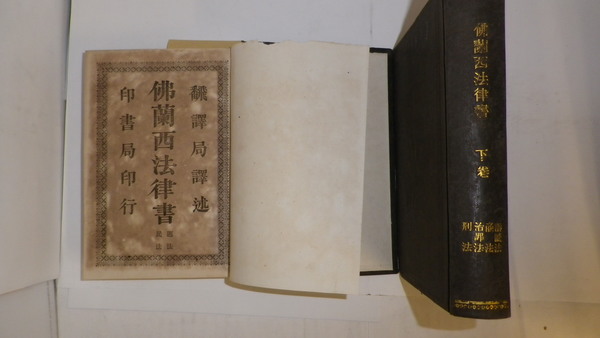 飜譯局譯述
佛蘭西法律書
憲法
民法
印書局印行
佛蘭西法律書
下卷
訴訟法
治罪法
刑法